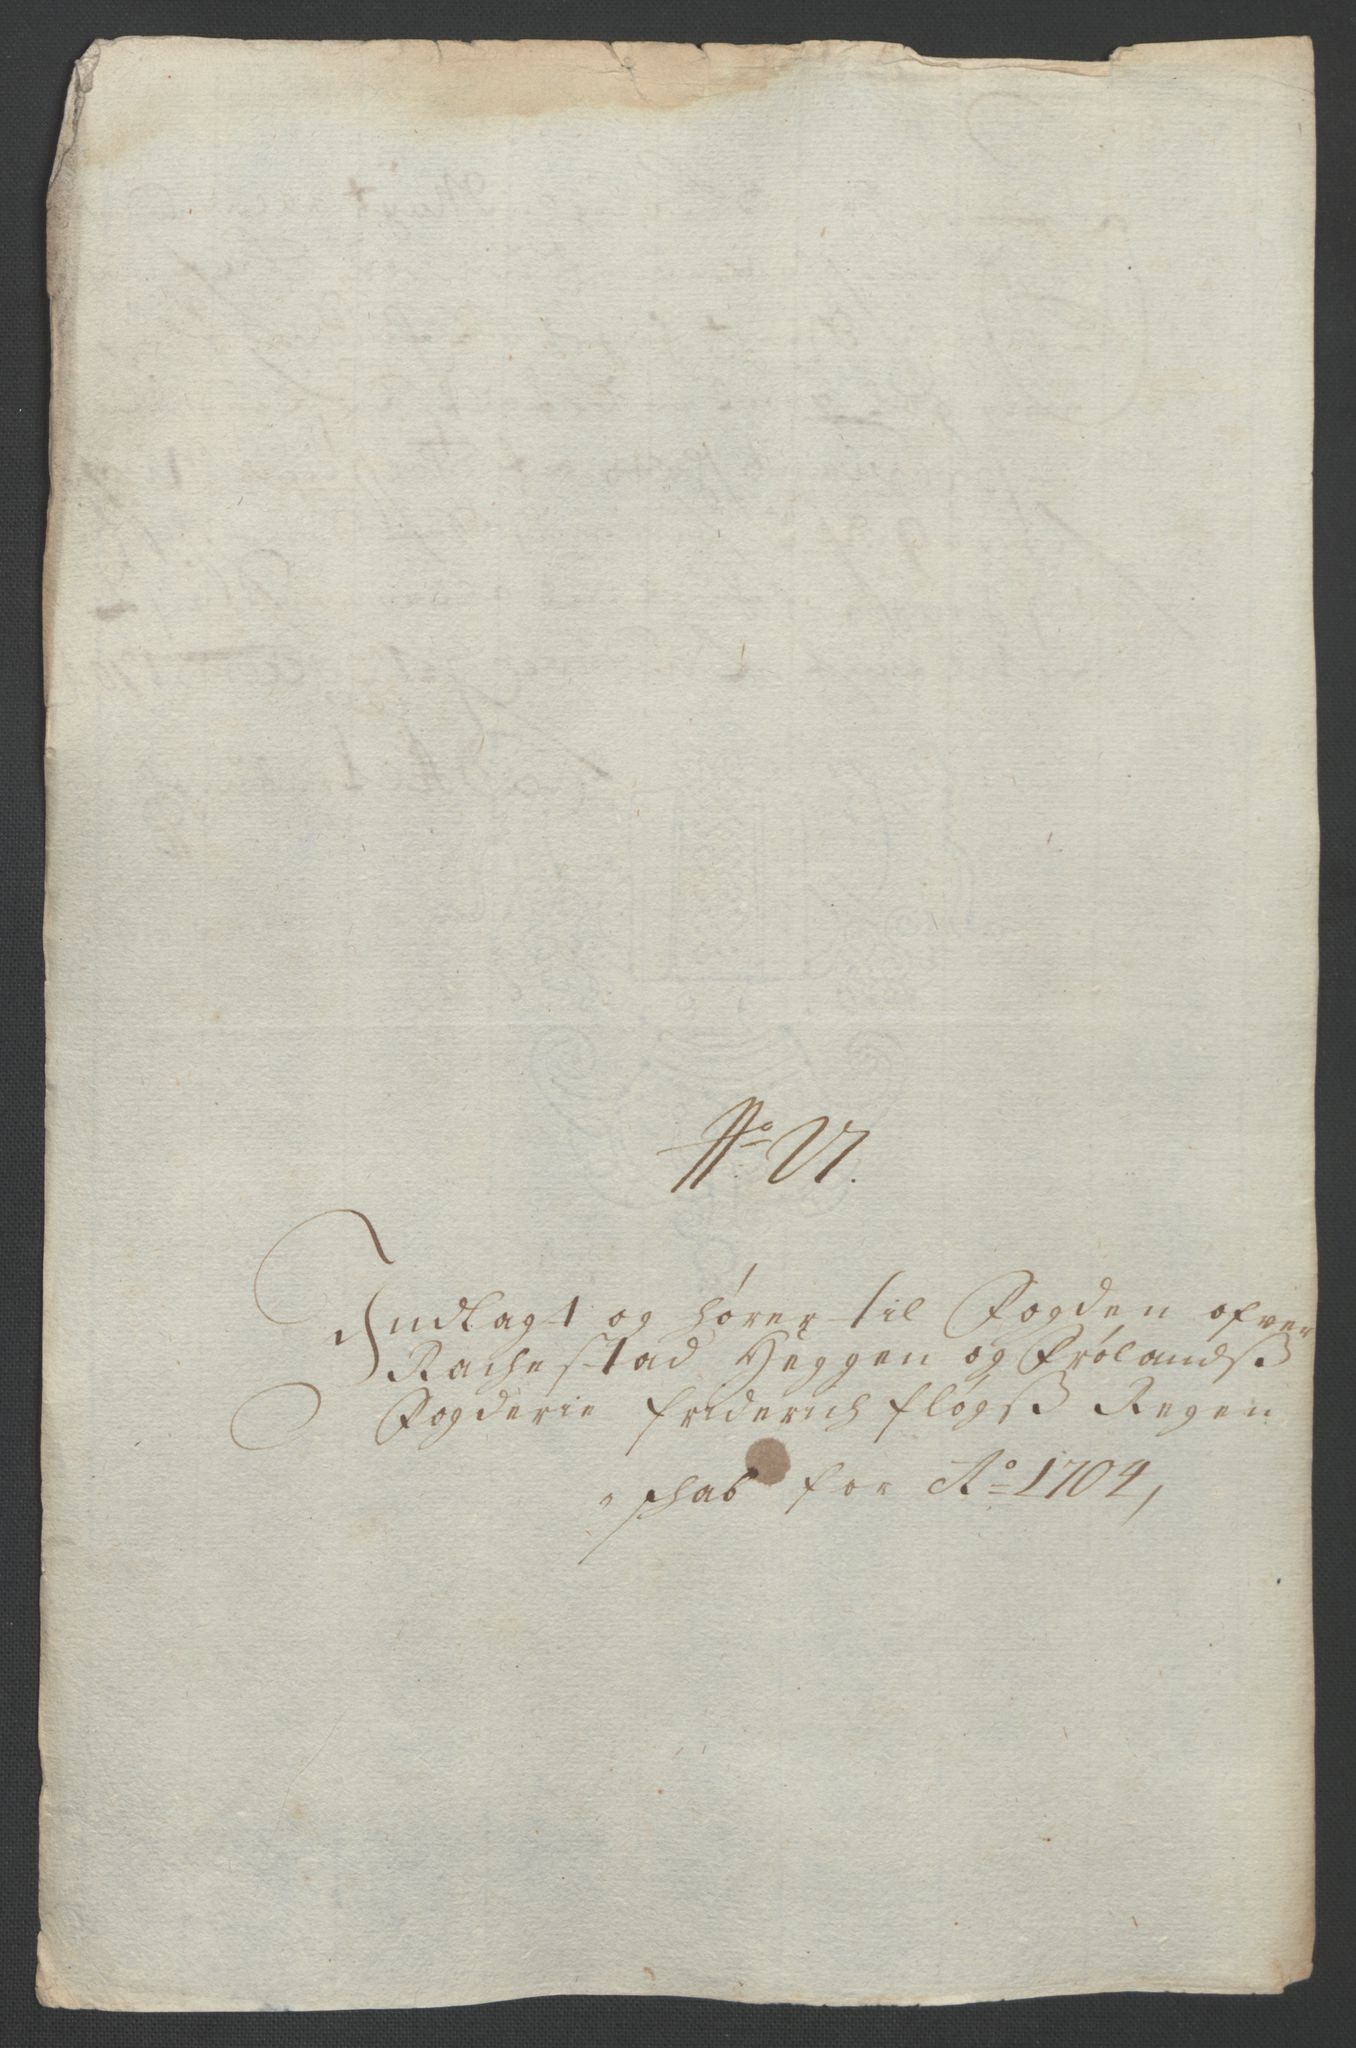 No VI.
Indlagt og hører til Fogden ofver
Rachestad Heggen og Frølandsß
Fogderie friderich fløgsß Regen
schab for Ao 1704,